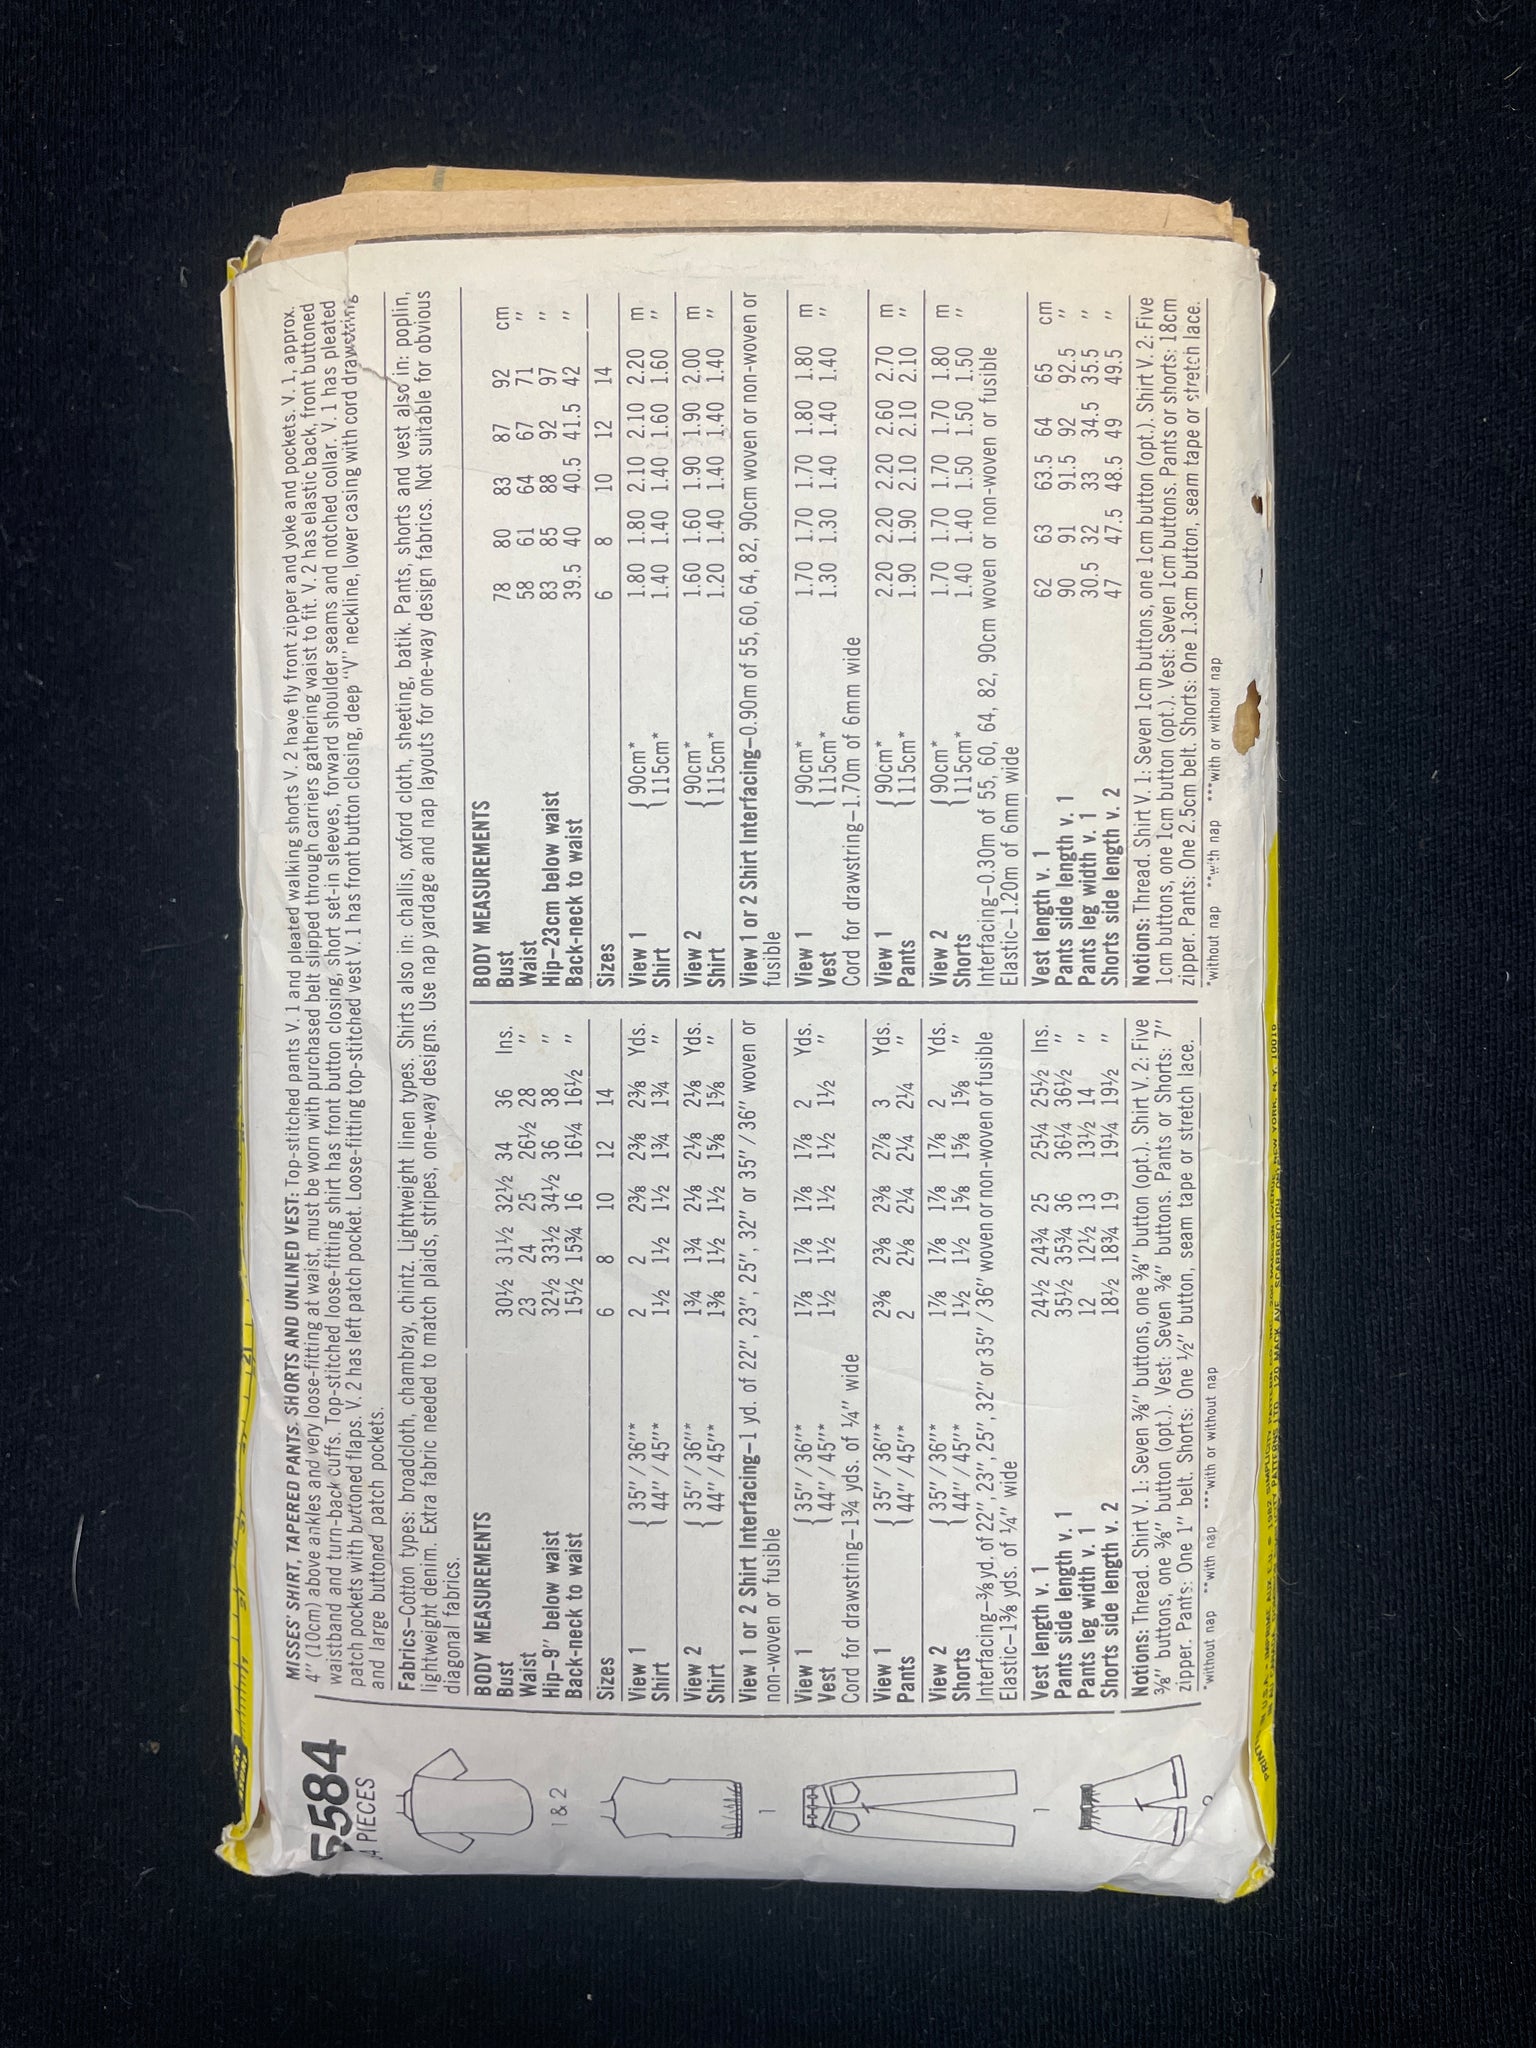 5584
PIECES
MISSES' SHIRT, TAPERED PANTS, SHORTS AND UNLINED VEST: Top-stitched pants V. 1 and pleated walking shorts V. 2 have fly front zipper and yoke and pockets. V. 1, approx.
4" (10cm) above ankles and very loose-fitting at waist, must be worn with purchased belt slipped through carriers gathering waist to fit. V. 2 has elastic back, front buttoned
waistband and turn-back cuffs. Top-stitched loose-fitting shirt has front button closing, short set-in sleeves, forward shoulder seams and notched collar. V. 1 has pleated
patch pockets with buttoned flaps. V. 2 has left patch pocket. Loose-fitting top-stitched vest V. 1 has front button closing, deep "V" neckline, lower casing with cord drawstring
and large buttoned patch pockets.
Fabrics—Cotton types: broadcloth, chambray, chintz. Lightweight linen types. Shirts also in: challis, oxford cloth, sheeting, batik. Pants, shorts and vest also in: poplin,
lightweight denim. Extra fabric needed to match plaids, stripes, one-way designs. Use nap yardage and nap layouts for one-way design fabrics. Not suitable for obvious
diagonal fabrics.
BODY MEASUREMENTS
Bust 30½ 31½ 32½ 34 36 Ins.
Waist 23 24 25 26½ 28 "
Hip—9" below waist 32½ 33½ 34½ 36 38 "
Back-neck to waist 15½ 15¾ 16 16¼ 16½ "
Sizes 6 8 10 12 14
View 1 { 35" / 36"* 2 2 2⅜ 2⅜ 2⅜ Yds.
Shirt 44" / 45"* 1½ 1½ 1½ 1¾ 1¾ "
View 2 { 35" / 36"* 1¾ 1¾ 2⅛ 2⅛ 2⅛ Yds.
Shirt 44" / 45"* 1⅜ 1½ 1½ 1⅝ 1⅝ "
View 1 or 2 Shirt Interfacing—1 yd. of 22", 23", 25", 32" or 35" / 36" woven or
non-woven or fusible
View 1 { 35" / 36"* 1⅞ 1⅞ 1⅞ 1⅞ 2 Yds.
Vest 44" / 45"* 1½ 1½ 1½ 1½ 1½ "
Cord for drawstring—1¾ yds. of ¼" wide
View 1 { 35" / 36"* 2⅜ 2⅜ 2⅜ 2⅞ 3 Yds.
Pants 44" / 45"* 2 2⅛ 2¼ 2¼ 2¼ "
View 2 { 35" / 36"* 1⅞ 1⅞ 1⅞ 1⅞ 2 Yds.
Shorts 44" / 45"* 1½ 1½ 1⅝ 1⅝ 1⅝ "
Interfacing—⅜ yd. of 22", 23", 25", 32" or 35" / 36" woven or non-woven or fusible
Elastic—1⅜ yds. of ¼" wide
Vest length v. 1 24½ 24¾ 25 25¼ 25½ Ins.
Pants side length v. 1 35½ 35¾ 36 36¼ 36½ "
Pants leg width v. 1 12 12½ 13 13½ 14 "
Shorts side length v. 2 18½ 18¾ 19 19¼ 19½ "
Notions: Thread. Shirt V. 1: Seven ⅜" buttons, one ⅜" button (opt.). Shirt V. 2: Five
⅜" buttons, one ⅜" button (opt.). Vest: Seven ⅜" buttons. Pants or Shorts: 7"
zipper. Pants: One 1" belt. Shorts: One ½" button, seam tape or stretch lace.
*without nap **with nap ***with or without nap
BODY MEASUREMENTS
Bust 78 80 83 87 92 cm
Waist 58 61 64 67 71 "
Hip—23cm below waist 83 85 88 92 97 "
Back-neck to waist 39.5 40 40.5 41.5 42 "
Sizes 6 8 10 12 14
View 1 { 90cm* 1.80 1.80 2.10 2.10 2.20 m
Shirt 115cm* 1.40 1.40 1.40 1.60 1.60 "
View 2 { 90cm* 1.60 1.60 1.90 1.90 2.00 m
Shirt 115cm* 1.20 1.40 1.40 1.40 1.40 "
View 1 or 2 Shirt Interfacing—0.90m of 55, 60, 64, 82, 90cm woven or non-woven or
fusible
View 1 { 90cm* 1.70 1.70 1.70 1.80 1.80 m
Vest 115cm* 1.30 1.30 1.40 1.40 1.40 "
Cord for drawstring—1.70m of 6mm wide
View 1 { 90cm* 2.20 2.20 2.20 2.60 2.70 m
Pants 115cm* 1.90 1.90 2.10 2.10 2.10 "
View 2 { 90cm* 1.70 1.70 1.70 1.70 1.80 m
Shorts 115cm* 1.40 1.40 1.50 1.50 1.50 "
Interfacing—0.30m of 55, 60, 64, 82, 90cm woven or non-woven or fusible
Elastic—1.20m of 6mm wide
Vest length v. 1 62 63 63.5 64 65 cm
Pants side length v. 1 90 91 91.5 92 92.5 "
Pants leg width v. 1 30.5 32 33 34.5 35.5 "
Shorts side length v. 2 47 47.5 48.5 49 49.5 "
Notions: Thread. Shirt V. 1: Seven 1cm buttons, one 1cm button (opt.). Shirt V. 2: Five
1cm buttons, one 1cm button (opt.). Vest: Seven 1cm buttons. Pants or shorts: 18cm
zipper. Pants: One 2.5cm belt. Shorts: One 1.3cm button, seam tape or stretch lace.
*without nap **with nap ***with or without nap
1 & 2
1
1